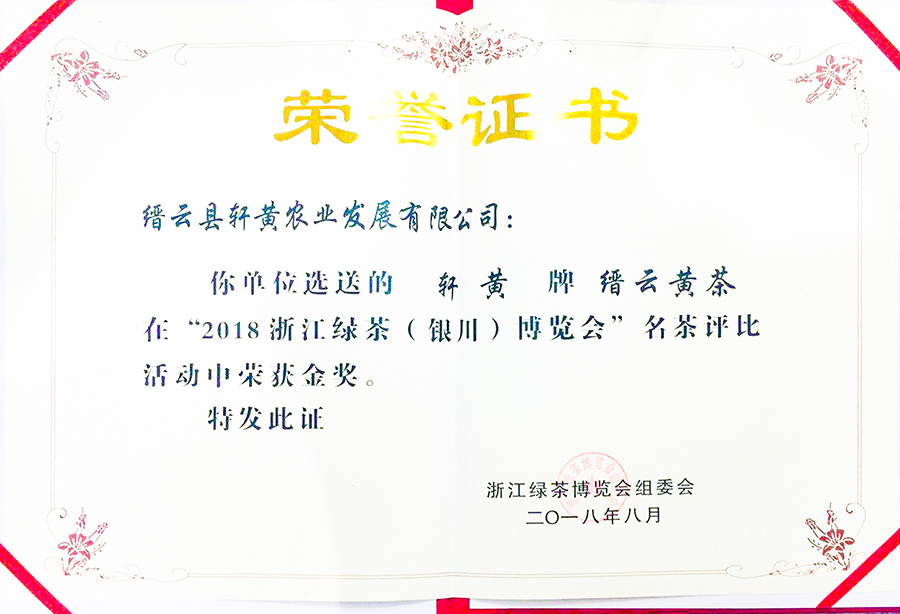 荣誉证书
缙云县轩黄农业发展有限公司：
你单位选送的 轩黄 牌 缙云黄茶
在“2018浙江绿茶（银川）博览会”名茶评比
活动中荣获金奖。
特发此证
浙江绿茶博览会组委会
二〇一八年八月